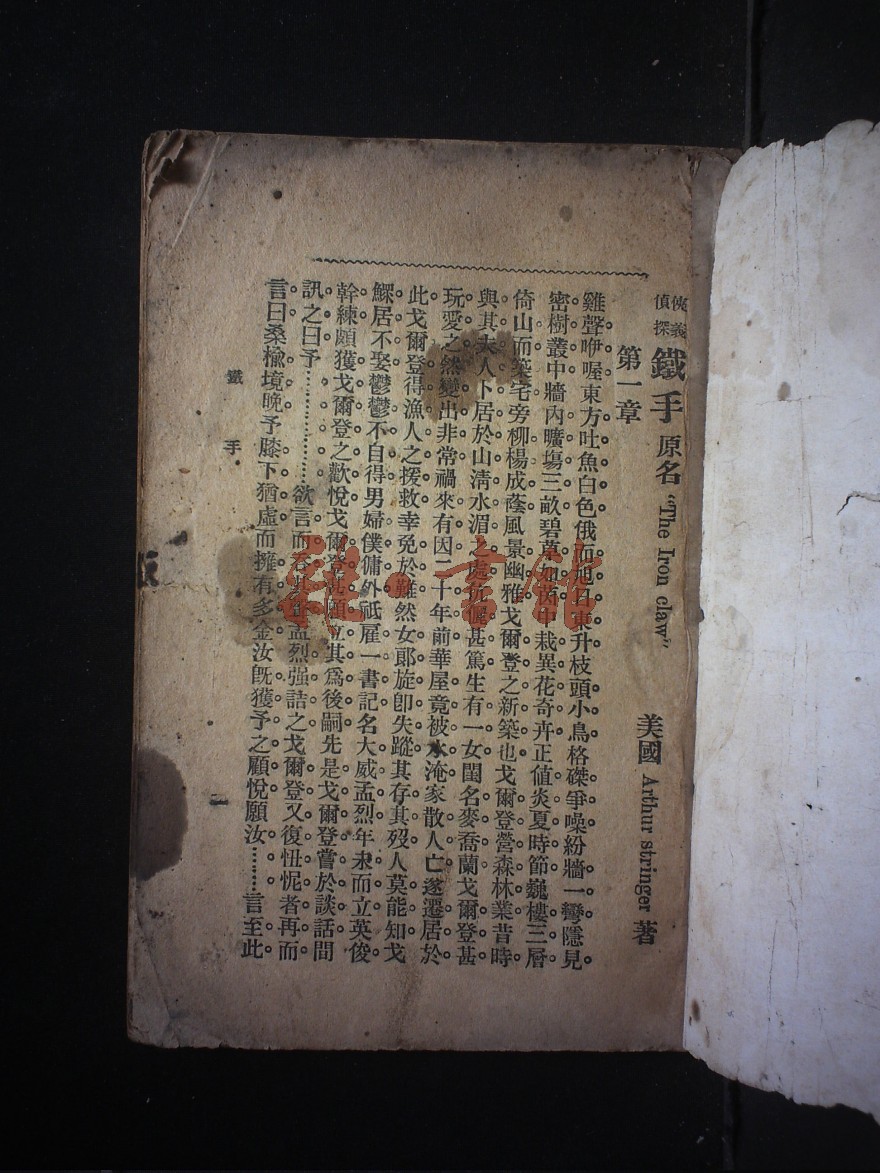 俠義偵探 鐵手 原名 “The Iron claw” 美國 Arthur stringer 著
第一章
雞聲咿喔。東方吐魚白色。俄而旭日東升。枝頭小鳥。格磔爭噪。紛牆一彎。隱見
密樹叢中。牆內曠塲三畝。碧草如茵。栽異花奇卉。正値炎夏時節。巍樓三層。
倚山而築。宅旁柳楊成蔭。風景幽雅。戈爾登之新築也。戈爾登營森林業。昔時
與其夫人卜居於山淸水湄處。伉儷甚篤。生有一女。閨名麥喬蘭。戈爾登甚
玩愛之。然變出非常。禍來有因。二十年前。華屋竟被水淹。家散人亡。遂遷居於
此。戈爾登得漁人之援救。幸免於難。然女郞旋卽失蹤。其存其歿。人莫能知。戈
鰥居不娶。鬱鬱不自得。男婦僕傭外。祗雇一書記。名大威孟烈。年未而立。英俊
幹練。頗獲戈爾登之歡悅。戈爾登願立其爲後嗣。先是戈爾登嘗於談話間
訊之曰。予………………欲言而吞。孟烈强詰之。戈爾登又復忸怩者再。而
言曰。桑楡境晚。予膝下猶虛。而擁有多金。汝旣獲予之顧悅。願汝………言至此。
鐵手
一
雜·書館